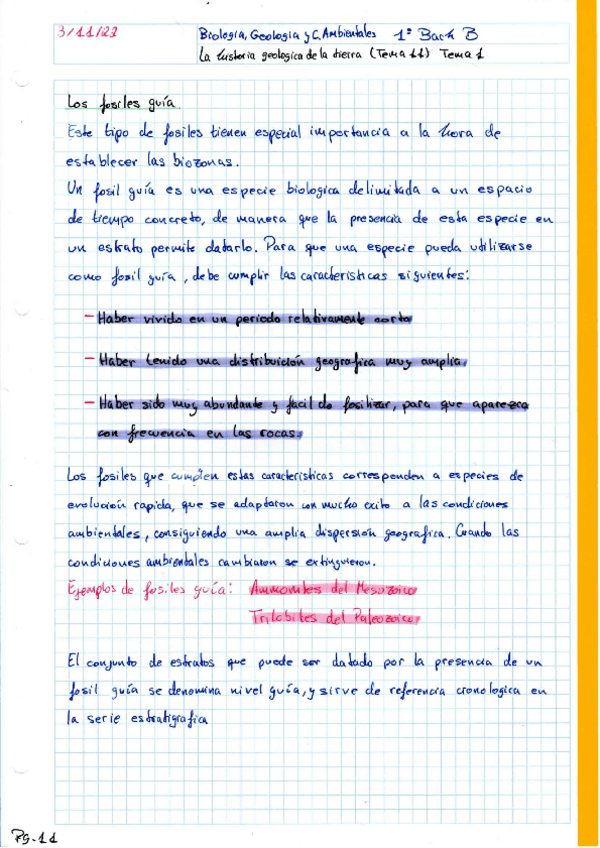 3/11/22
Biología, Geología y C. Ambientales 1º Bach B
La historia geologica de la tierra (Tema 11) Tema 1
Los fosiles guía
Este tipo de fosiles tienen especial importancia a la hora de
establecer las biozonas.
Un fosil guía es una especie biologica delimitada a un espacio
de tiempo concreto, de manera que la presencia de esta especie en
un estrato permite datarlo. Para que una especie pueda utilizarse
como fosil guía, debe cumplir las caracteristicas siguientes:
- Haber vivido en un periodo relativamente corto
- Haber tenido una distribuición geografica muy amplia.
- Haber sido muy abundante y facil de fosilizar, para que aparezca
con frecuencia en las rocas.
Los fosiles que cumplen estas caracteristicas corresponden a especies de
evolución rapida, que se adaptaron con mucho exito a las condiciones
ambientales, consiguiendo una amplia dispersión geografica. Cuando las
condiciones ambientales cambiaron se extinguieron.
Ejemplos de fosiles guía: Ammonites del Mesozoico
Trilobites del Paleozoico
El conjunto de estratos que puede ser datado por la presencia de un
fosil guía se denomina nivel guía, y sirve de referencia cronologica en
la serie estratigrafica
Pg-11